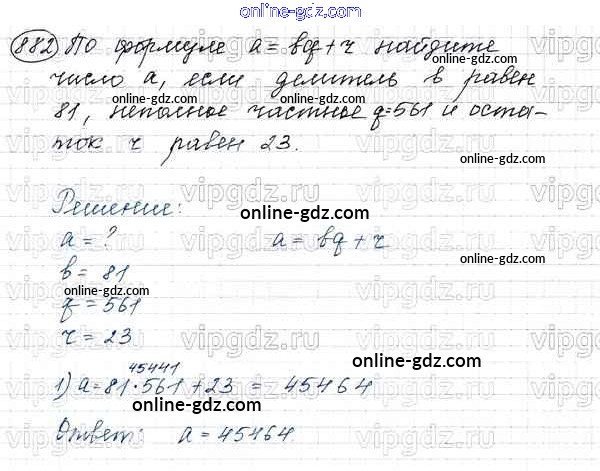 online-gdz.com
882 По формуле a = bq + r найдите
число a, если делитель b равен
online-gdz.com
81, неполное частное q=561 и оста-
online-gdz.com
ток r равен 23.
online-gdz.com
Решение:
online-gdz.com
a = ? a = bq + r
b = 81
online-gdz.com
q = 561
r = 23
online-gdz.com
45441
1) a = 81 · 561 + 23 = 45464
online-gdz.com
Ответ: a = 45464.
online-gdz.com
vipgdz.ru